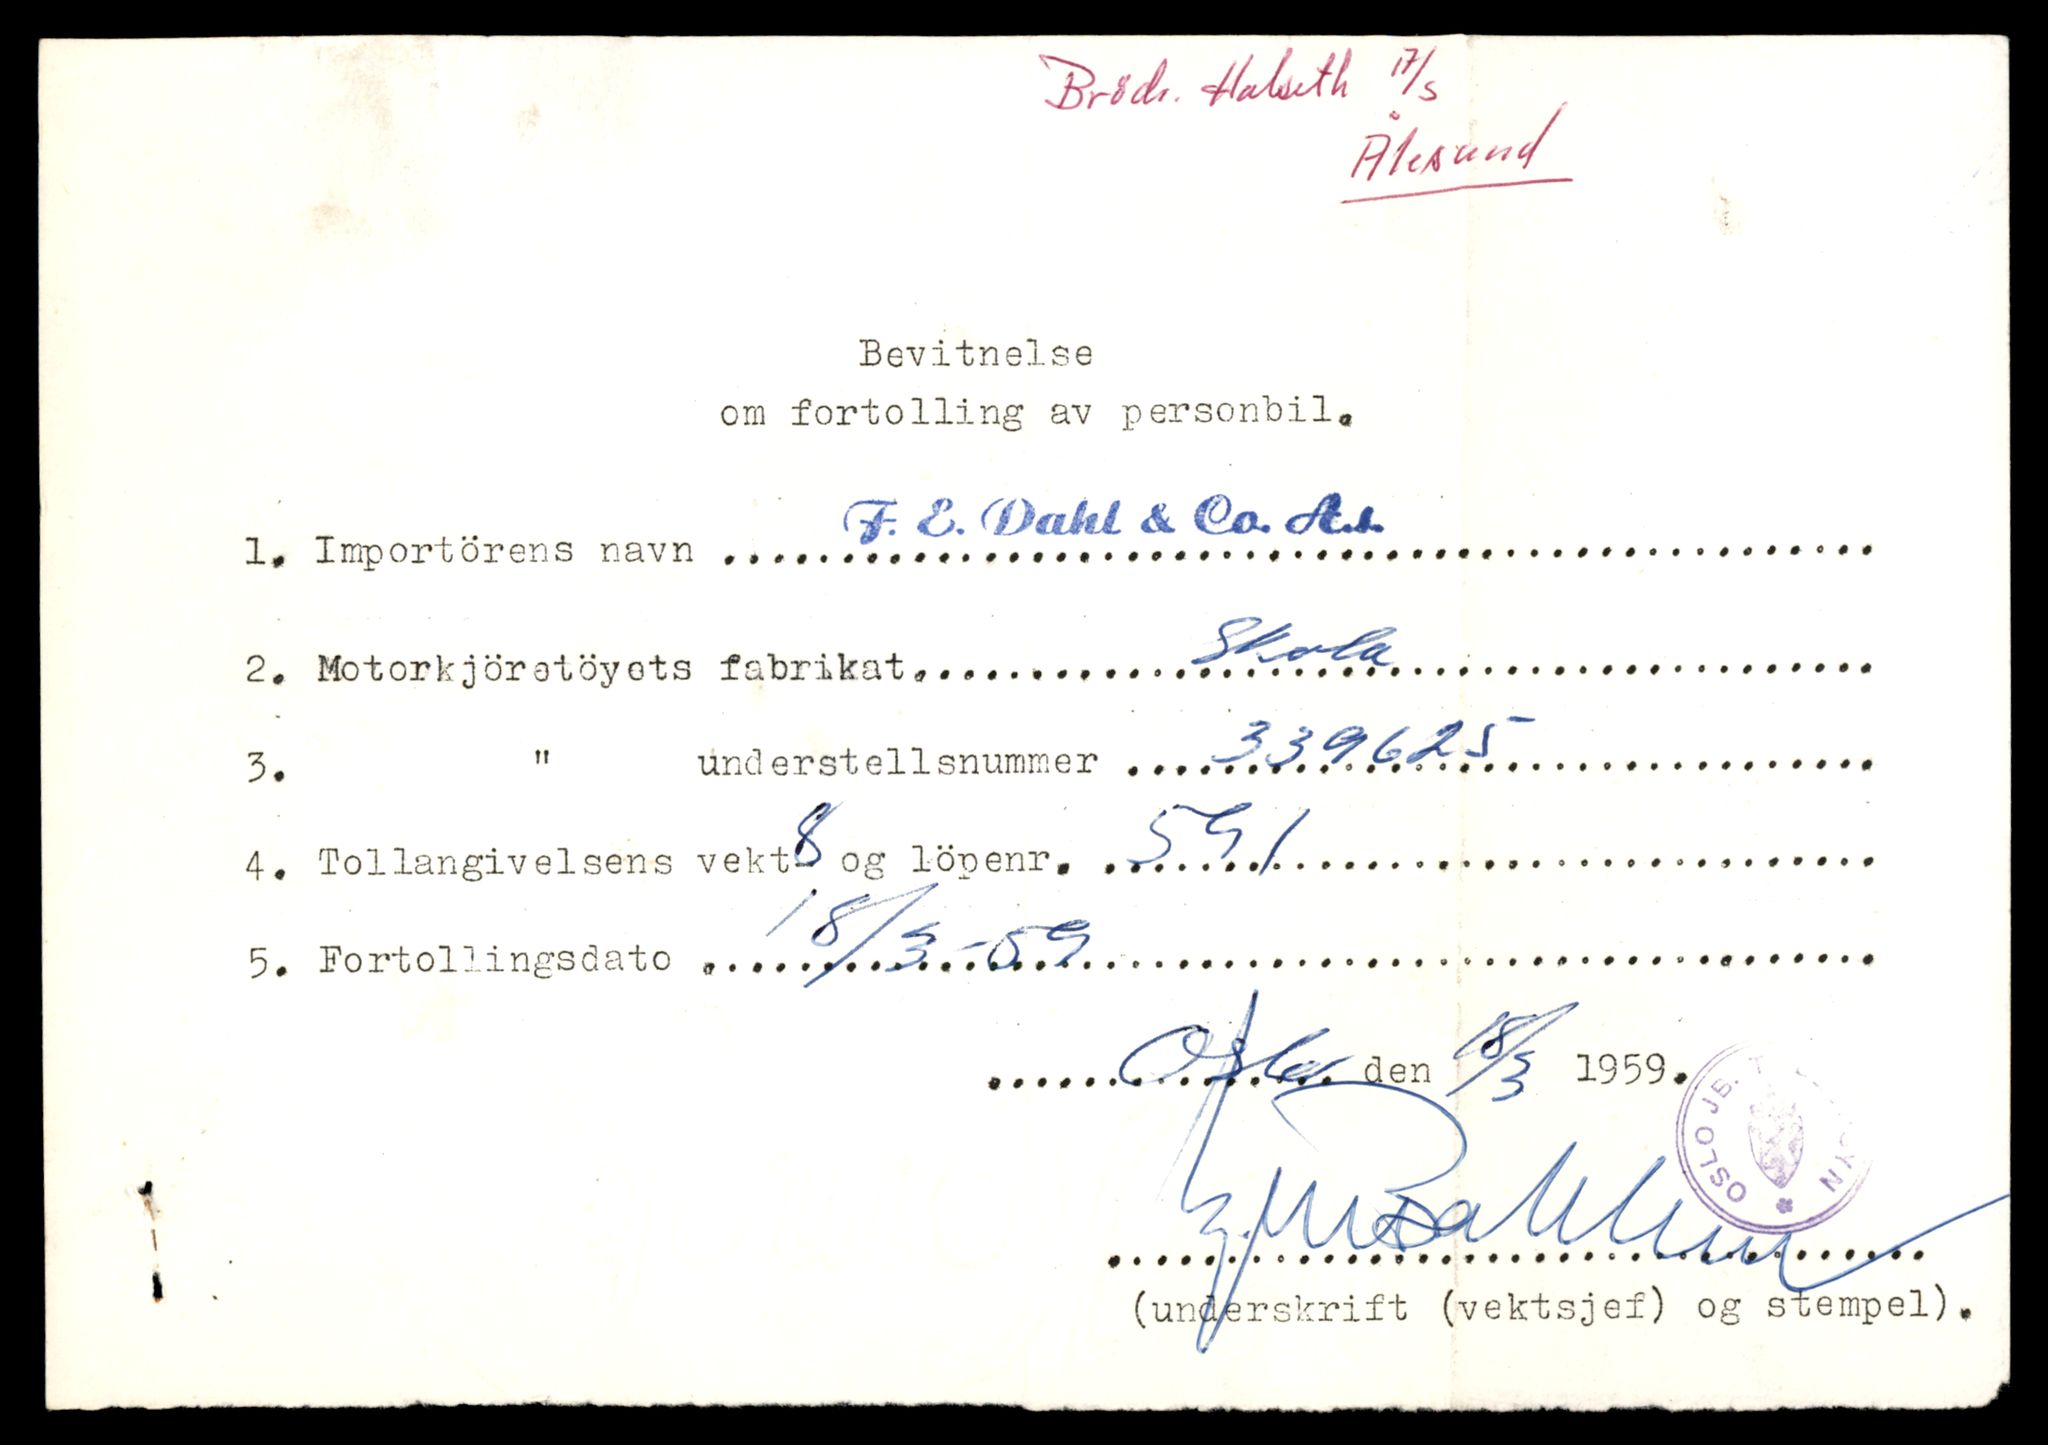 Brödr. Halseth 17/5
Ålesund
Bevitnelse
om fortolling av personbil.
1. Importörens navn F. E. Dahl & Co. A.s.
2. Motorkjöretöyets fabrikat. Skoda
3. " understellsnummer 339625
4. Tollangivelsens vekt 8 og löpenr. 591
5. Fortollingsdato 18/3-59
Oslo den 18/3 1959.
OSLO JB. T
(underskrift (vektsjef) og stempel).